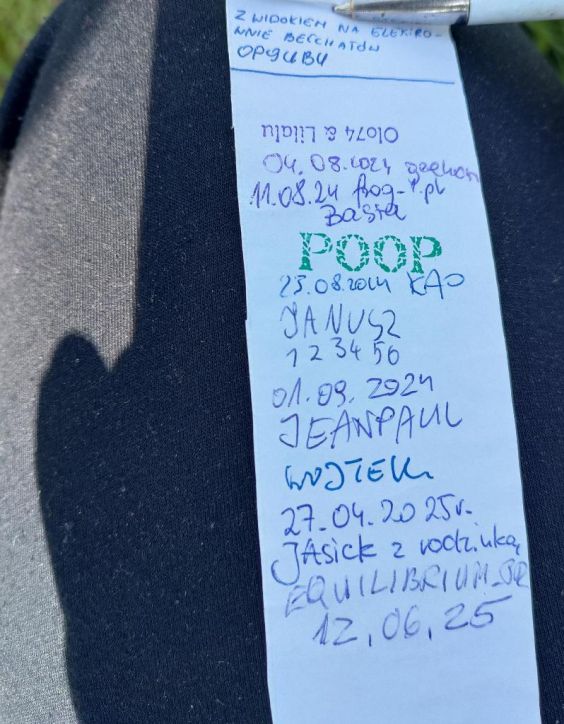 Z WIDOKIEM NA ELEKTRO-
WNIE BEŁCHATÓW
OP9UBU
Olo74 & Lilalu
04.08.2024
11.08.24 frog-1.pl
Basia
POOP
25.08.2024 KAO
JANUSZ
1 2 3 4 5 6
01.09.2024
JEANPAUL
WOJTEK
27.04.2025r.
JAsick z rodzinką
EQUILIBRIUM_
12.06.25